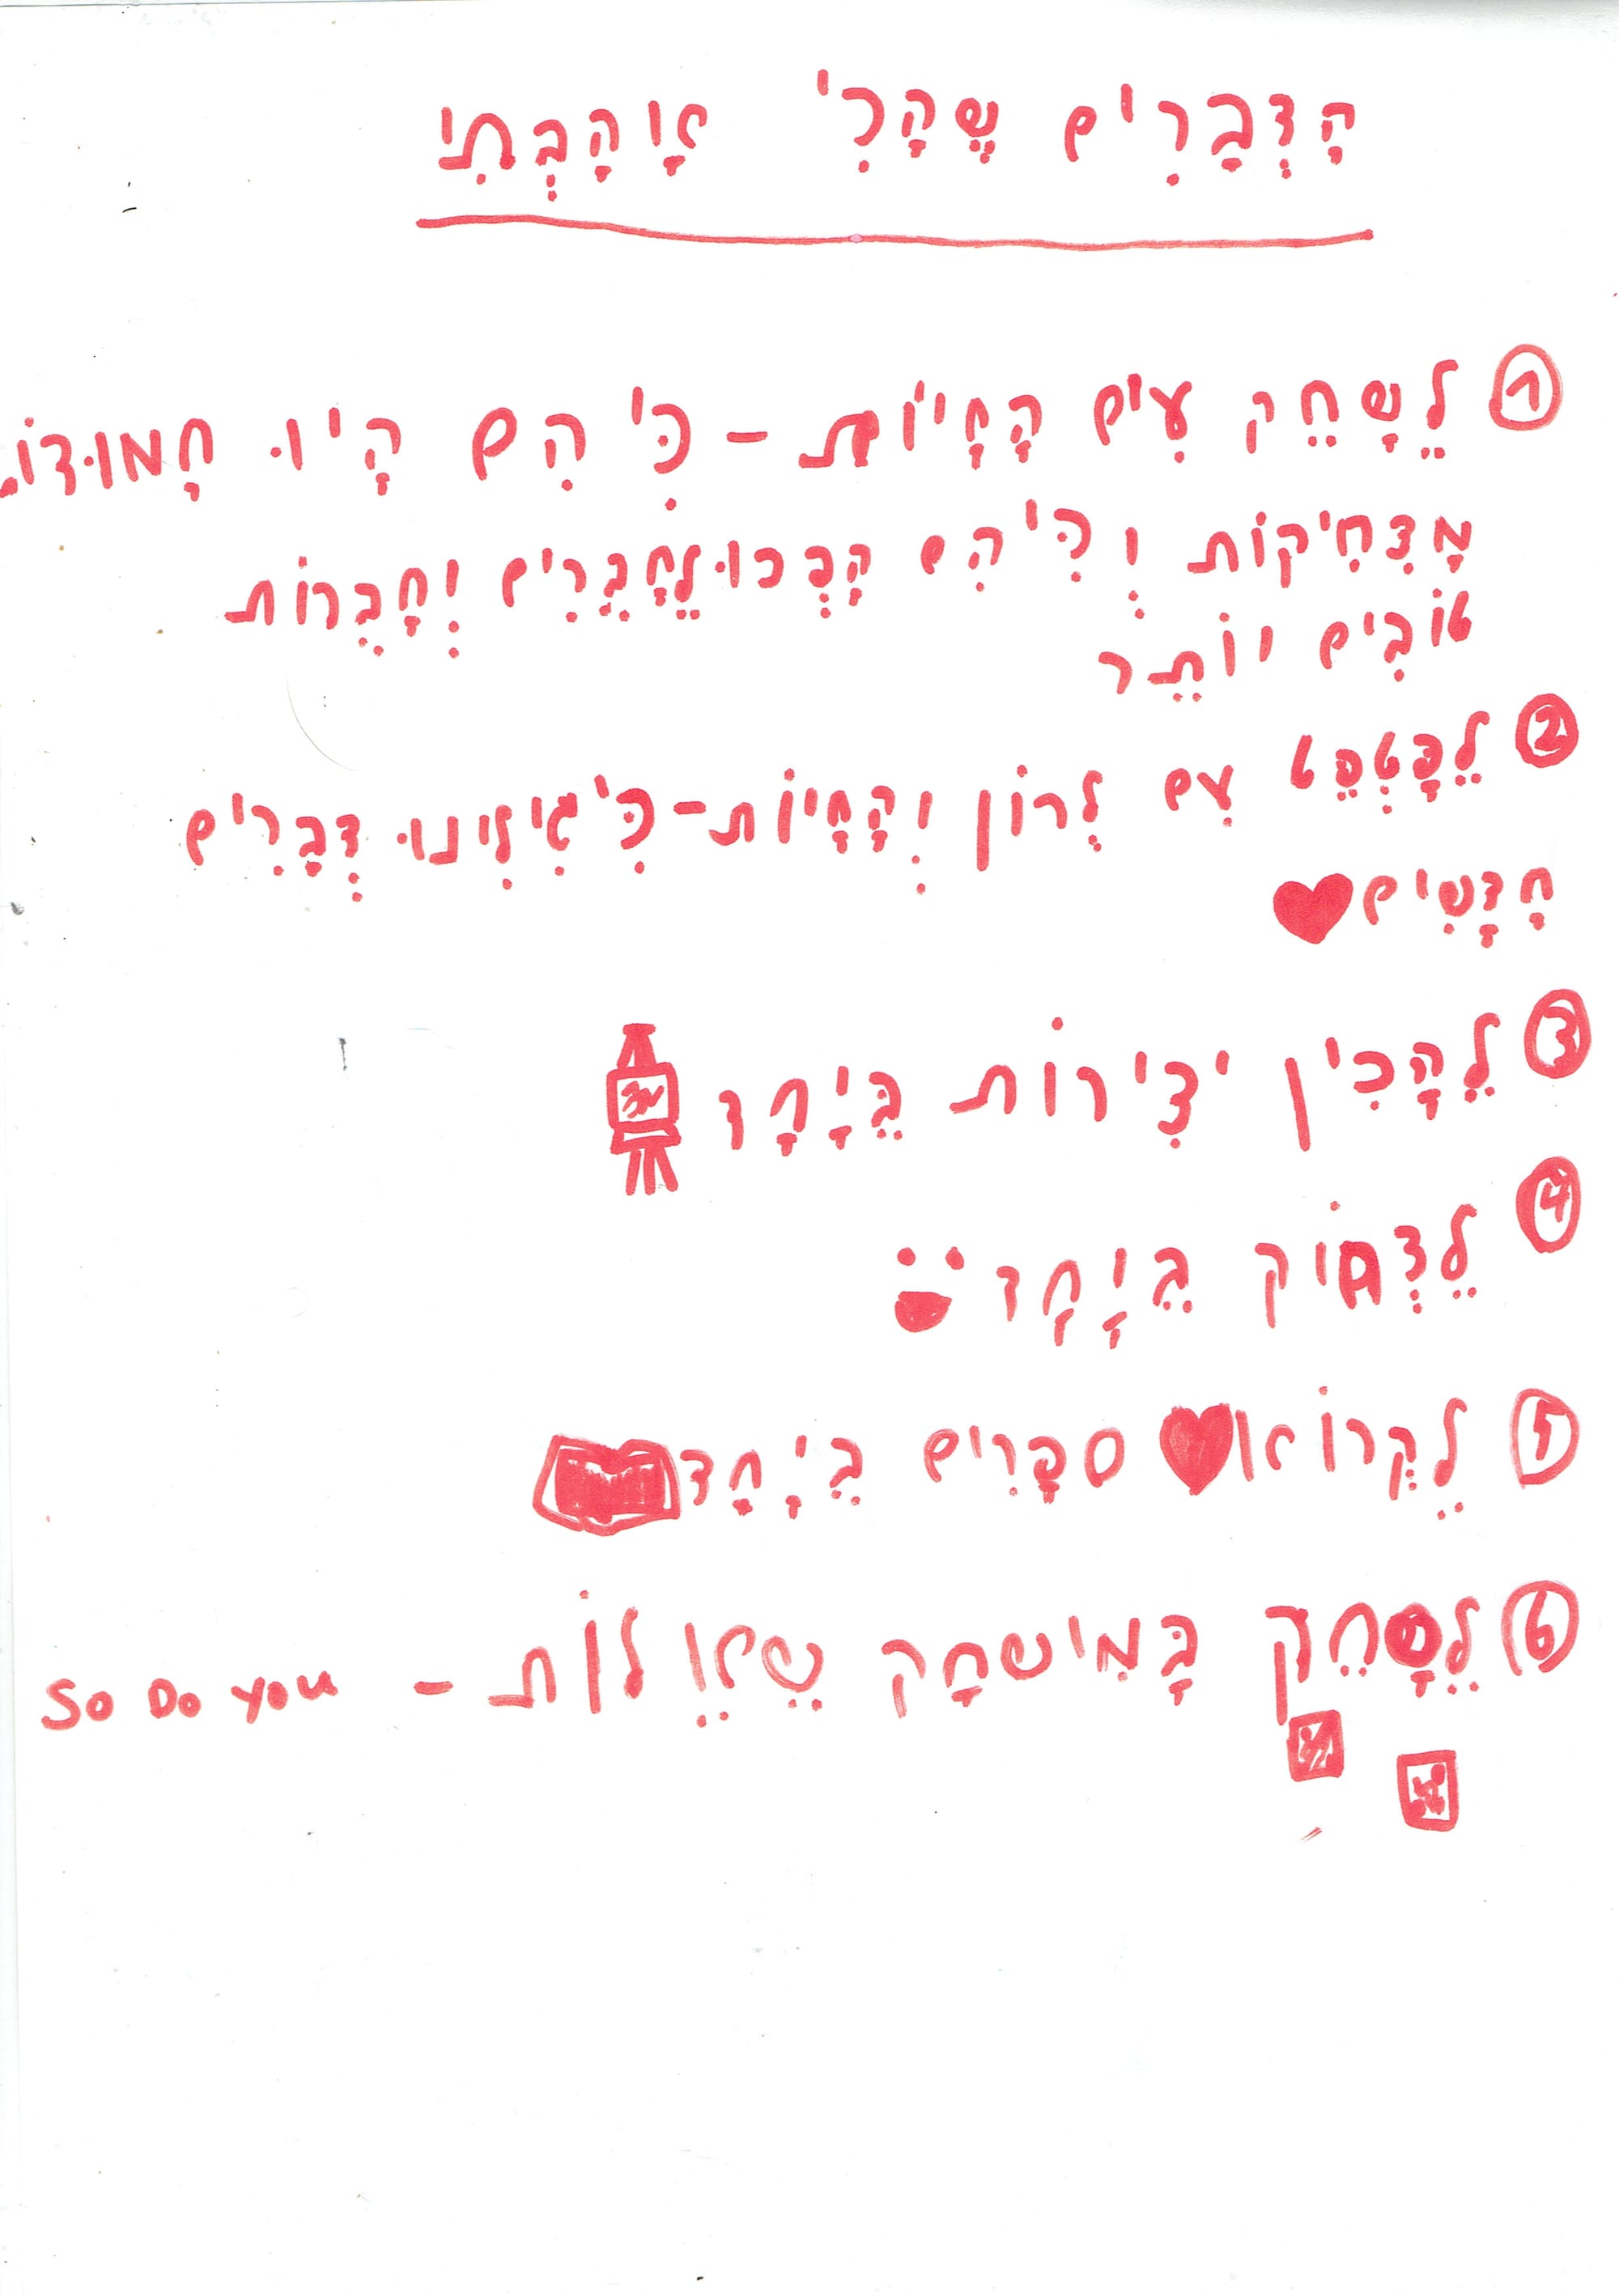 הָדְבָרִים שֶׁהָכִי אָוהָבְתִי
1 לֵשָחֵק עִים הָחָיוֹת - כִּי הִם הָיוּ חָמוּדוֹת
מָצְחִיקוֹת וְכִּי הִם הָפְכוּ לֵחָבֵרִים וְחָבֵרוֹת
טוֹבִים יוֹתֵר
2 לֵפָּטְפֵּט עִם לֶרוֹן וְהָחָיוֹת - כִּי גִילִינוּ דְבָרִים
חָדָשִים
3 לֵהָכִין יצִירוֹת בֵּיָחָד
4 לֵצְחוֹק בֵּיָחָד
5 לֵקְרוֹא ספָרִים בֵּיָחָד
6 לֵשָחֵק בָּמִישחָק שֵאֵלוֹת - So Do you